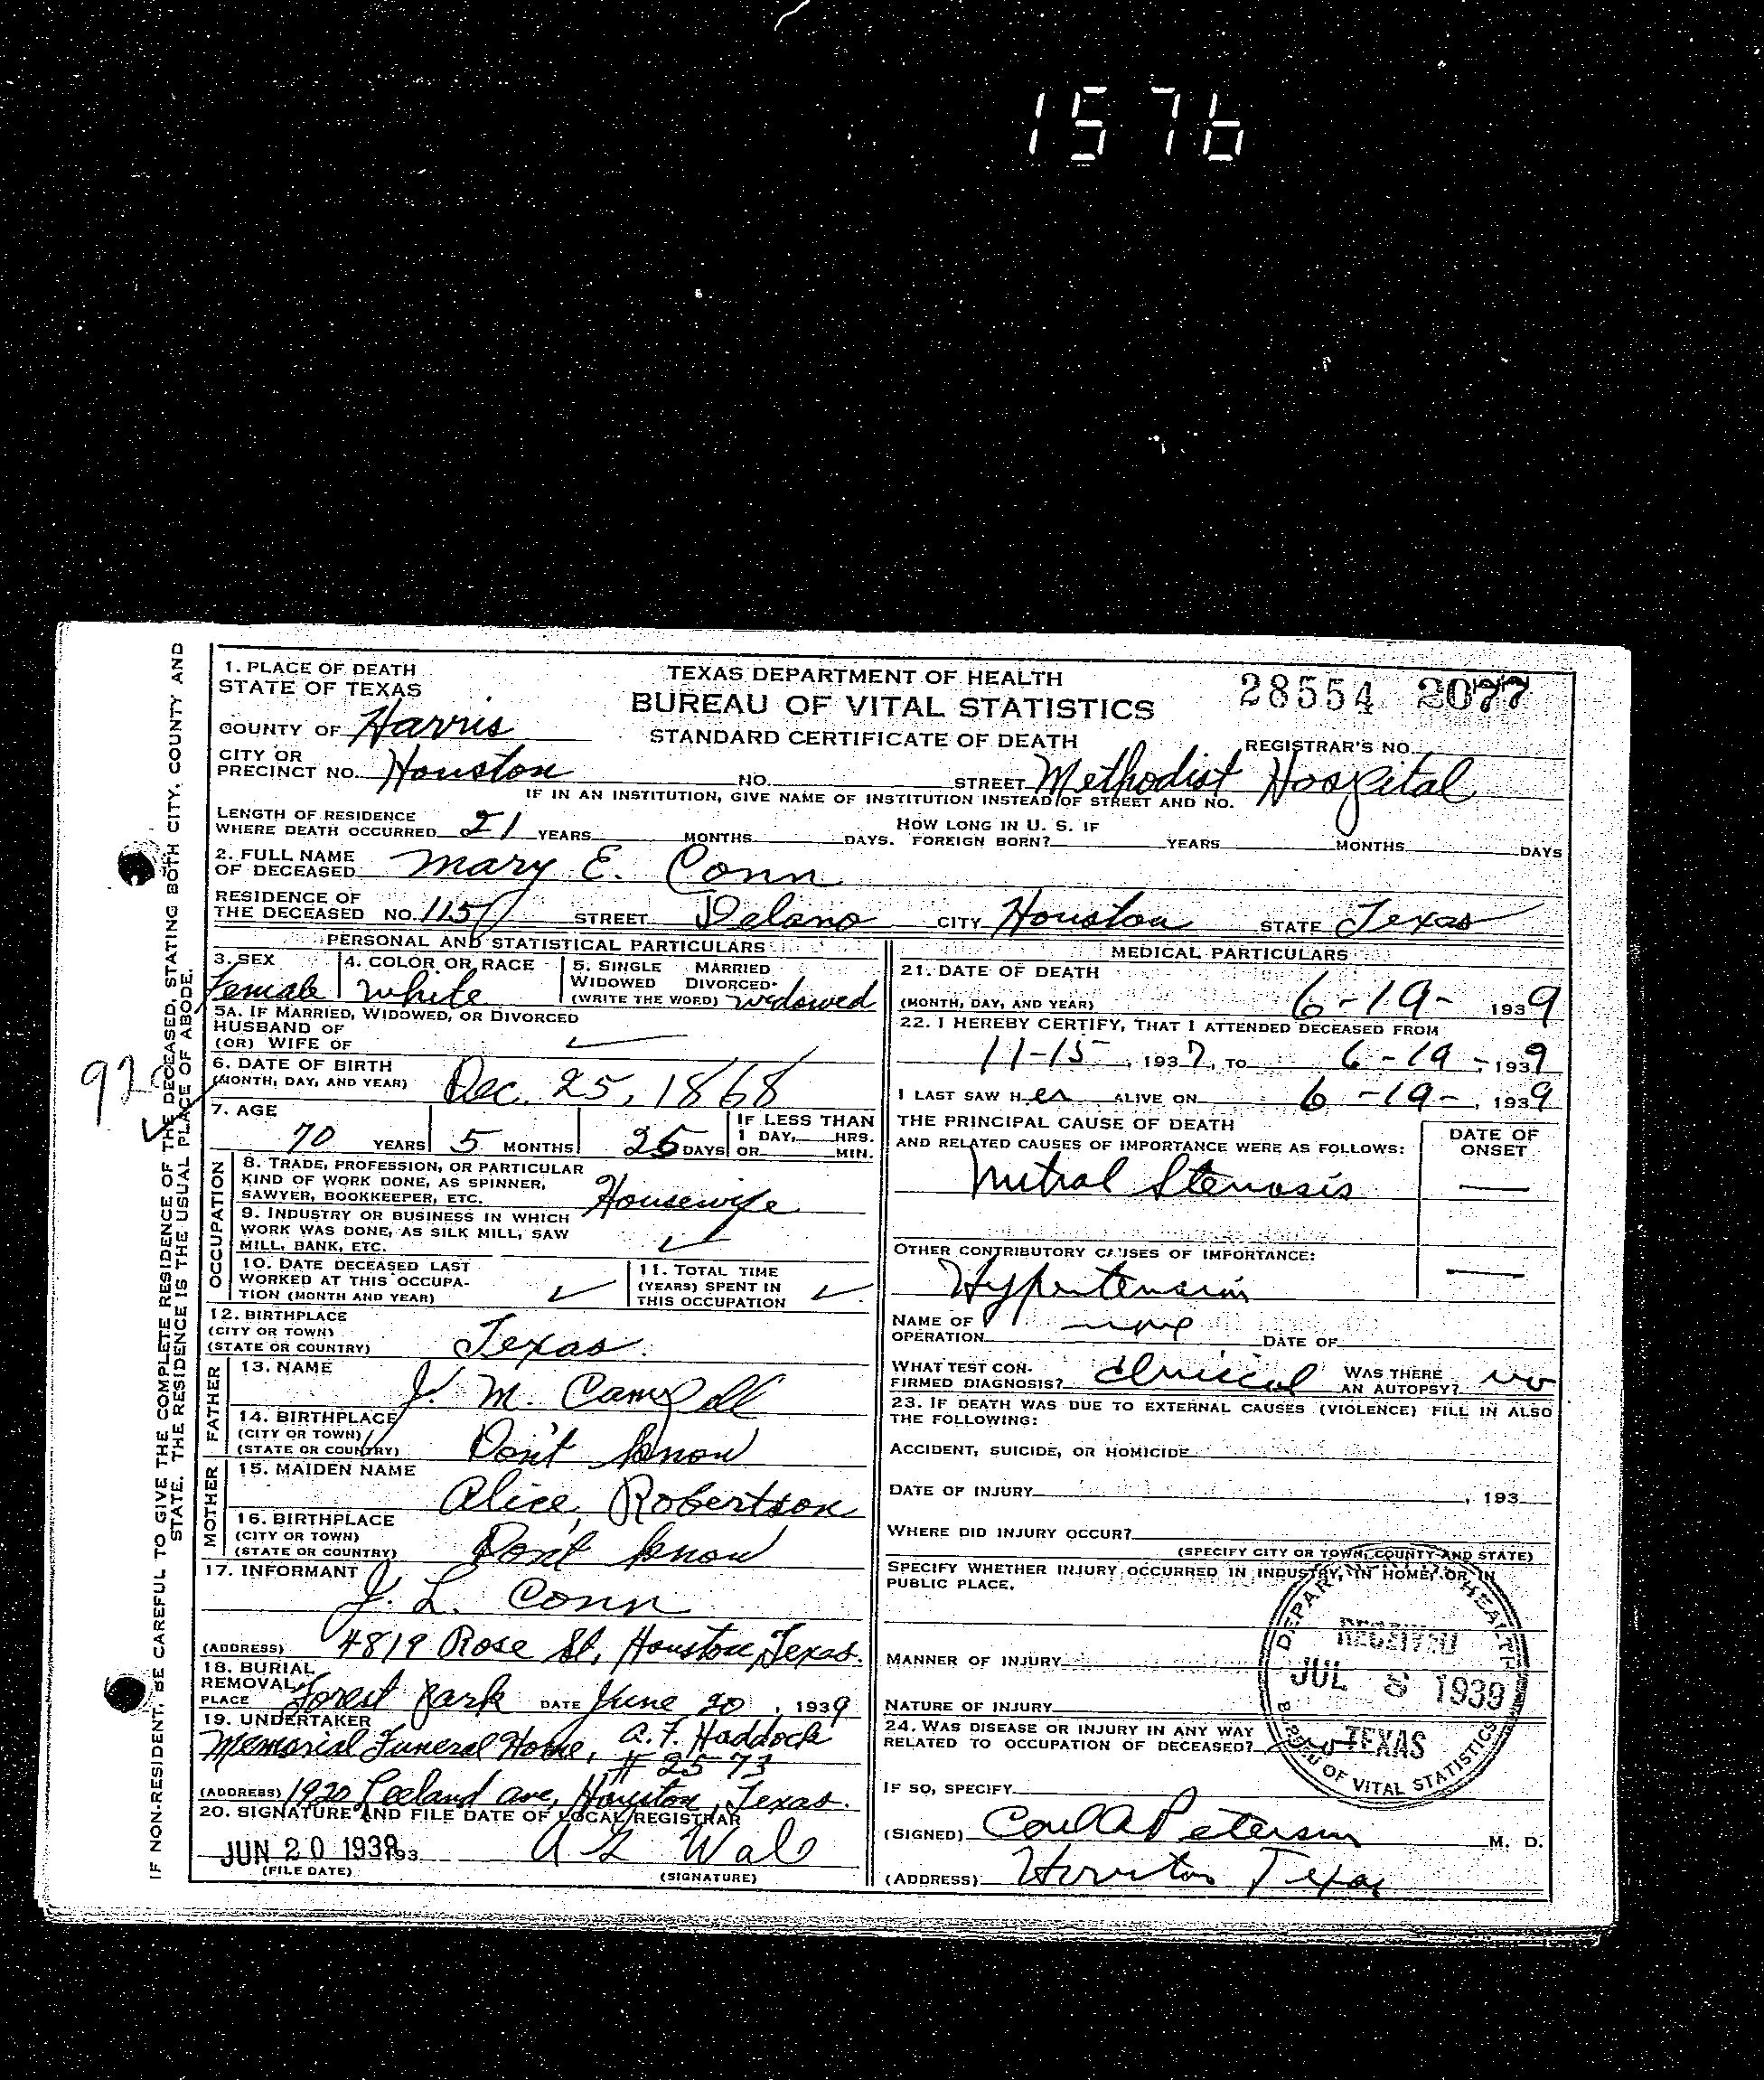 1576
1. PLACE OF DEATH
STATE OF TEXAS
TEXAS DEPARTMENT OF HEALTH
BUREAU OF VITAL STATISTICS
STANDARD CERTIFICATE OF DEATH
28554 2077
COUNTY OF Harris
REGISTRAR'S NO.
CITY OR
PRECINCT NO. Houston NO. STREET Methodist Hospital
IF IN AN INSTITUTION, GIVE NAME OF INSTITUTION INSTEAD OF STREET AND NO.
LENGTH OF RESIDENCE
WHERE DEATH OCCURRED 21 YEARS MONTHS DAYS. HOW LONG IN U. S. IF FOREIGN BORN? YEARS MONTHS DAYS
2. FULL NAME
OF DECEASED Mary E. Conn
RESIDENCE OF
THE DECEASED NO. STREET Delano CITY Houston STATE Texas
PERSONAL AND STATISTICAL PARTICULARS
3. SEX
Female
4. COLOR OR RACE
White
5. SINGLE MARRIED
WIDOWED DIVORCED
(WRITE THE WORD) Widowed
5A. IF MARRIED, WIDOWED, OR DIVORCED
HUSBAND OF
(OR) WIFE OF
6. DATE OF BIRTH
(MONTH, DAY, AND YEAR) Dec. 25, 1868
7. AGE
70 YEARS 5 MONTHS 25 DAYS
IF LESS THAN
1 DAY, HRS.
OR MIN.
OCCUPATION
8. TRADE, PROFESSION, OR PARTICULAR
KIND OF WORK DONE, AS SPINNER,
SAWYER, BOOKKEEPER, ETC. Housewife
9. INDUSTRY OR BUSINESS IN WHICH
WORK WAS DONE, AS SILK MILL, SAW
MILL, BANK, ETC.
10. DATE DECEASED LAST
WORKED AT THIS OCCUPA-
TION (MONTH AND YEAR)
11. TOTAL TIME
(YEARS) SPENT IN
THIS OCCUPATION
12. BIRTHPLACE
(CITY OR TOWN)
(STATE OR COUNTRY) Texas
FATHER
13. NAME
J. M.
14. BIRTHPLACE
(CITY OR TOWN)
(STATE OR COUNTRY) Don't know
MOTHER
15. MAIDEN NAME
Alice Robertson
16. BIRTHPLACE
(CITY OR TOWN)
(STATE OR COUNTRY) Don't know
17. INFORMANT
J. L. Conn
(ADDRESS) 4819 Rose St, Houston, Texas.
18. BURIAL
REMOVAL
PLACE Forest Park DATE June 20, 1939
19. UNDERTAKER
Memorial Funeral Home, A. F. Haddock
# 2573
(ADDRESS) 1920 Leeland Ave, Houston, Texas.
20. SIGNATURE AND FILE DATE OF LOCAL REGISTRAR
JUN 20 1939 193
(FILE DATE) (SIGNATURE)
MEDICAL PARTICULARS
21. DATE OF DEATH
(MONTH, DAY, AND YEAR) 6-19- 1939
22. I HEREBY CERTIFY, THAT I ATTENDED DECEASED FROM
11-15, 1937, TO 6-19-, 1939
I LAST SAW Her ALIVE ON 6-19-, 1939
THE PRINCIPAL CAUSE OF DEATH
AND RELATED CAUSES OF IMPORTANCE WERE AS FOLLOWS:
DATE OF
ONSET
Mitral Stenosis
OTHER CONTRIBUTORY CAUSES OF IMPORTANCE:
Hypertension
NAME OF
OPERATION none DATE OF
WHAT TEST CON-
FIRMED DIAGNOSIS? Clinical WAS THERE
AN AUTOPSY? no
23. IF DEATH WAS DUE TO EXTERNAL CAUSES (VIOLENCE) FILL IN ALSO
THE FOLLOWING:
ACCIDENT, SUICIDE, OR HOMICIDE
DATE OF INJURY , 193
WHERE DID INJURY OCCUR?
(SPECIFY CITY OR TOWN, COUNTY AND STATE)
SPECIFY WHETHER INJURY OCCURRED IN INDUSTRY, IN HOME, OR IN
PUBLIC PLACE.
MANNER OF INJURY
NATURE OF INJURY
24. WAS DISEASE OR INJURY IN ANY WAY
RELATED TO OCCUPATION OF DECEASED?
IF SO, SPECIFY
(SIGNED) Peterson M. D.
(ADDRESS) Houston Texas
RECEIVED
JUL 8 1939
TEXAS
BUREAU OF VITAL STATISTICS
IF NON-RESIDENT, BE CAREFUL TO GIVE THE COMPLETE RESIDENCE OF THE DECEASED, STATING BOTH CITY, COUNTY AND
STATE. THE RESIDENCE IS THE USUAL PLACE OF ABODE.